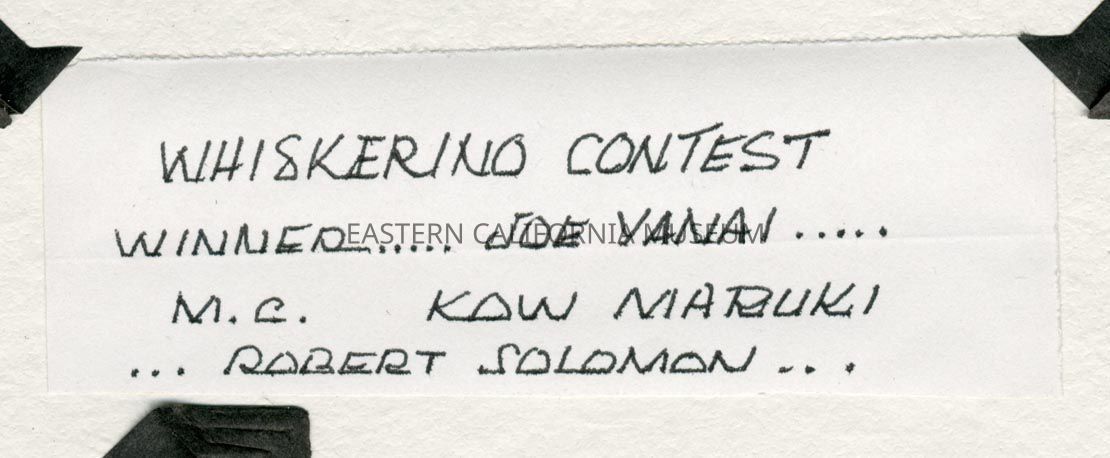 WHISKERINO CONTEST
WINNER..... JOE YANAI .....
EASTERN CALIFORNIA MUSEUM
M.C. KOW MARUKI
... ROBERT SOLOMON ...